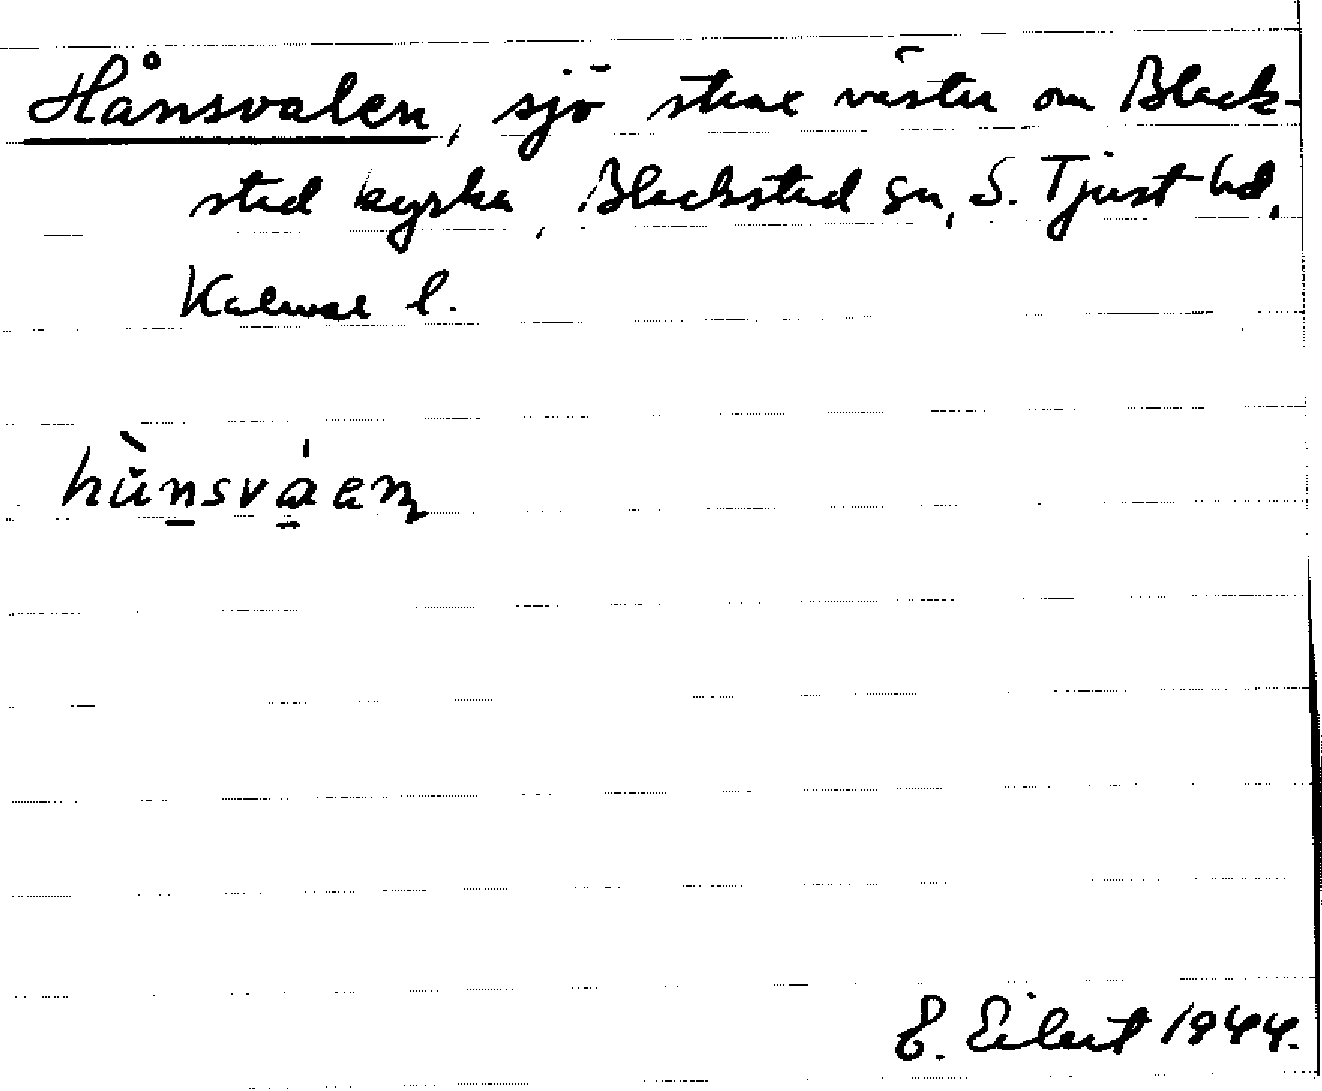 Hånsvalen, sjö strax väster om Black-
stad kyrka, Blackstad sn, S. Tjust hd,
Kalmar l.
hùnsváen
E. Eilert 1944.